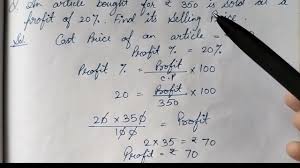 Q. An article bought for ₹ 350 is sold at a
profit of 20%. Find its Selling Price.
Sol Cost Price of an article =
Profit % = 20%
Profit % = Profit/C.P × 100
20 = Profit/350 × 100
20 × 350/100 = Profit
2 × 35 = ₹ 70
Profit = ₹ 70